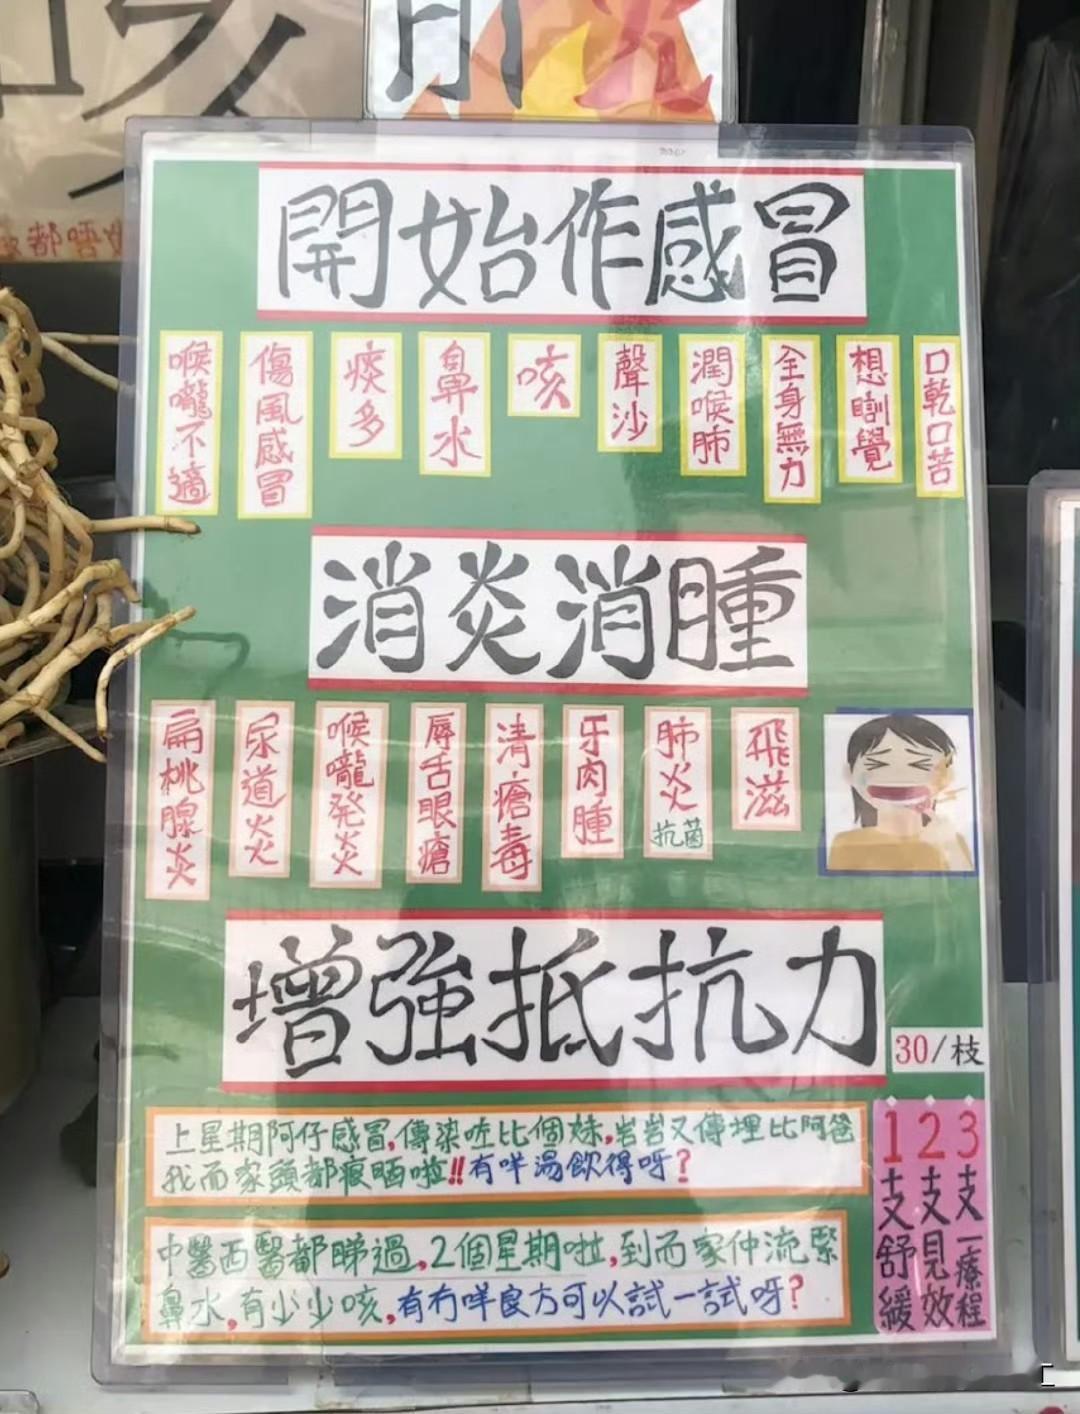 都唔
開始作感冒
喉嚨不適
傷風感冒
痰多
鼻水
咳
聲沙
潤喉肺
全身無力
想瞓覺
口乾口苦
消炎消腫
扁桃腺炎
尿道炎
喉嚨発炎
唇舌眼瘡
清瘡毒
牙肉腫
肺炎
抗菌
飛滋
增強抵抗力
30/枝
上星期阿仔感冒,傳染咗比個妹,岩岩又傳埋比阿爸
我而家頭都痕晒啦!!有咩湯飲得呀?
中醫西醫都睇過,2個星期啦,到而家仲流緊
鼻水,有少少咳,有冇咩良方可以試一試呀?
1支舒緩
2支見效
3支一療程